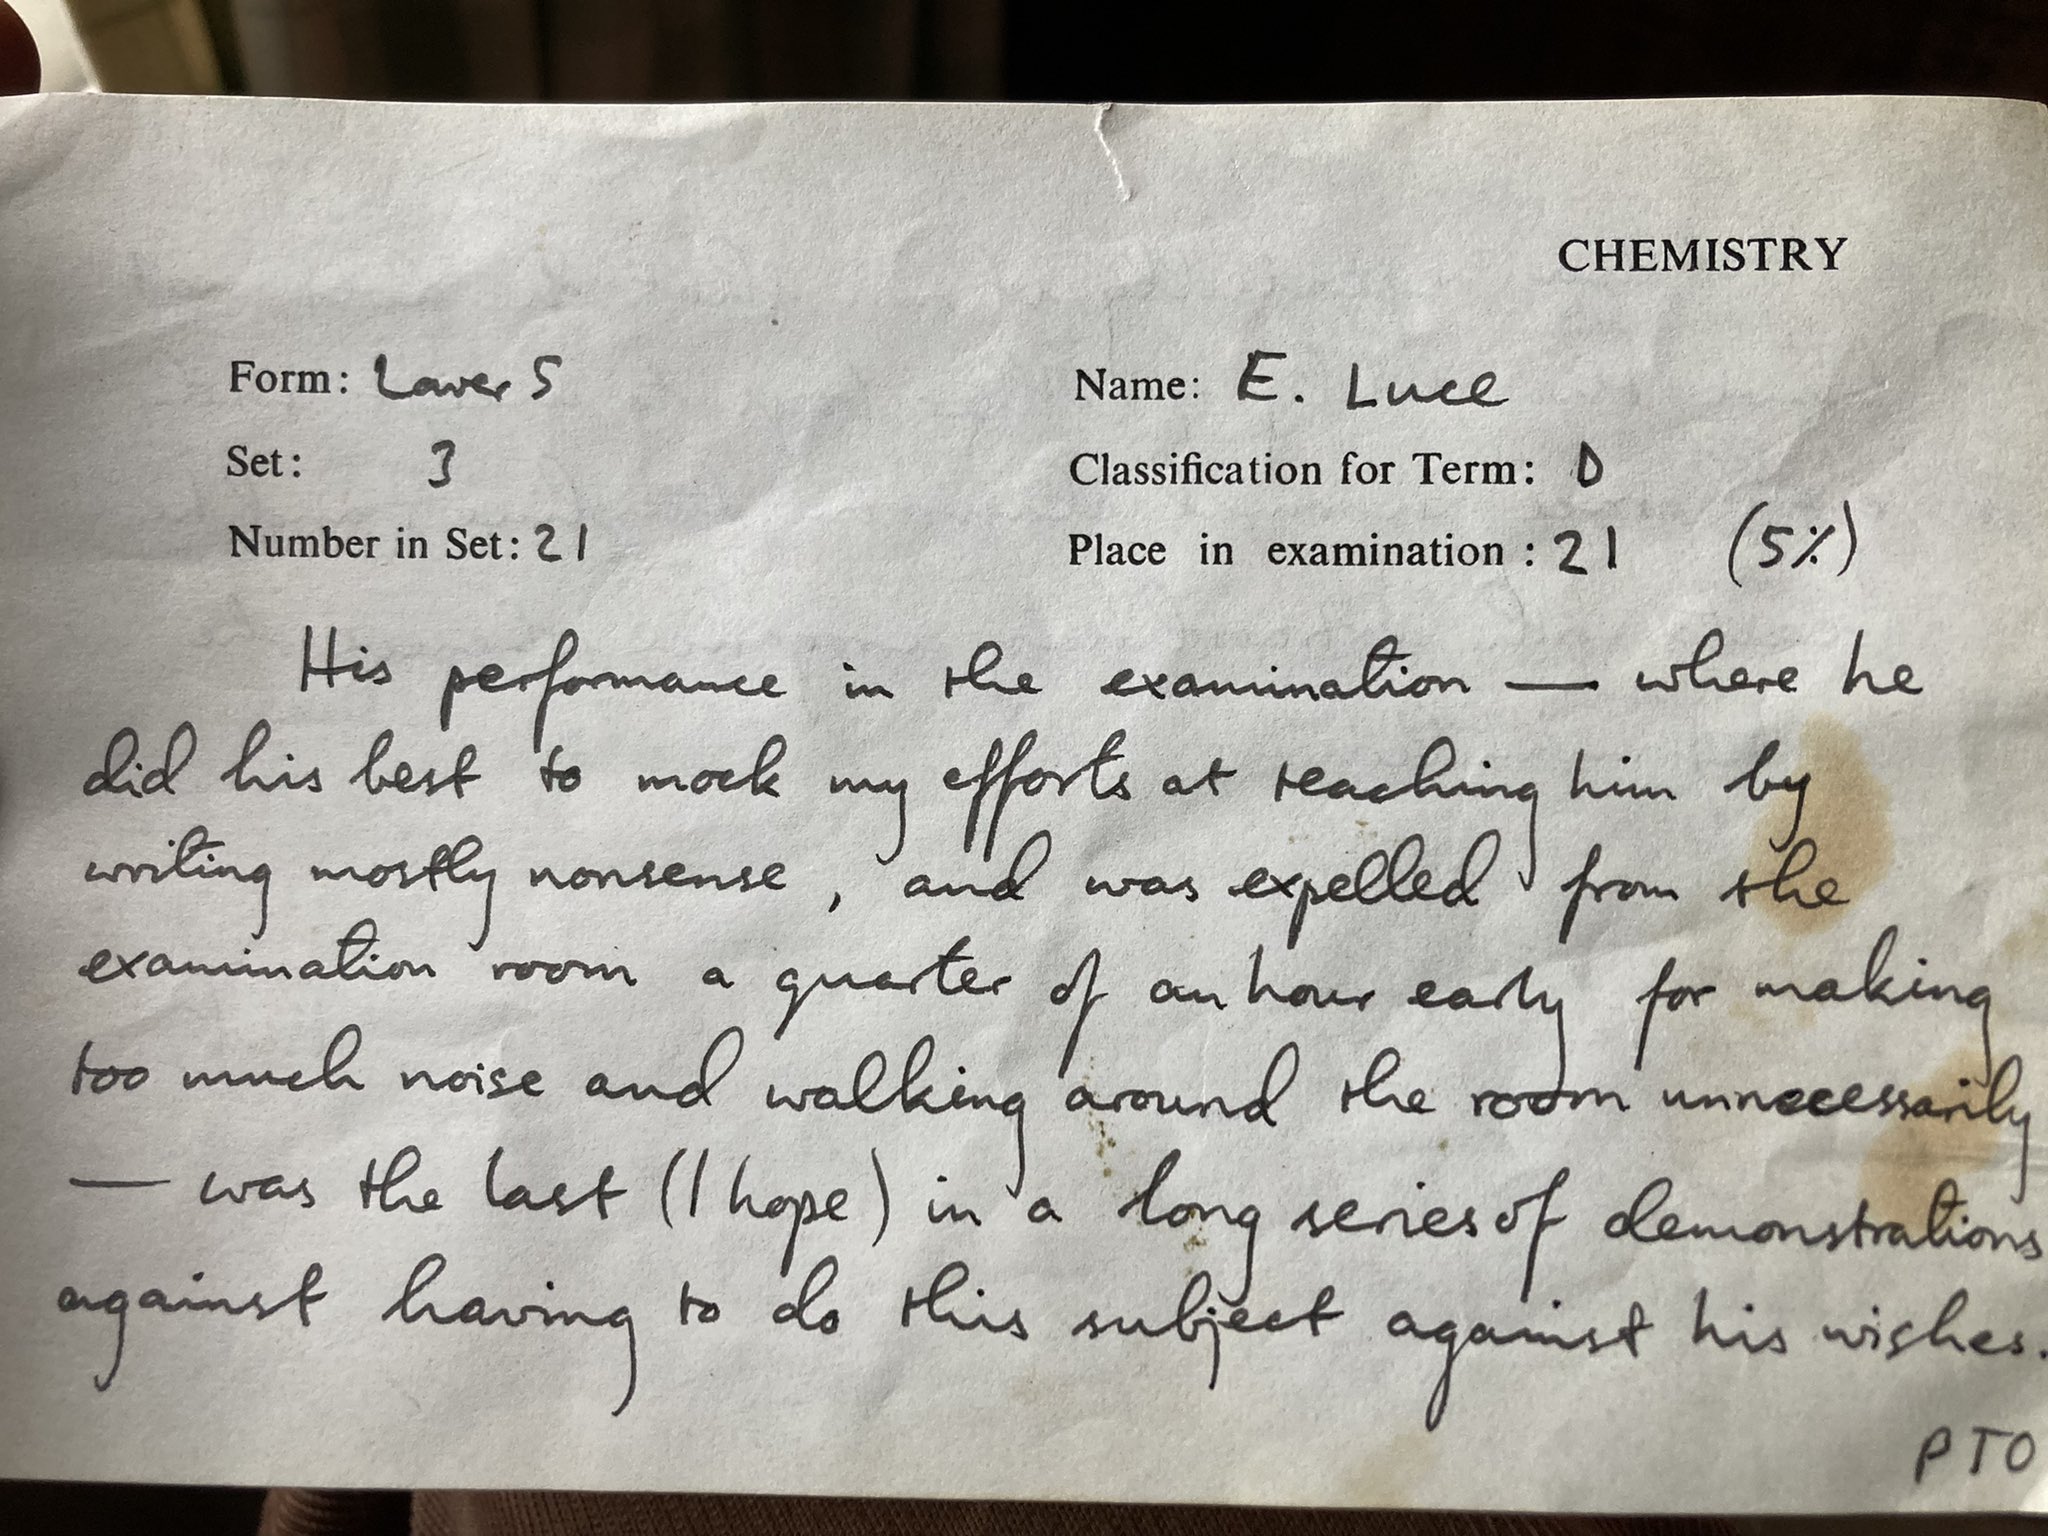 CHEMISTRY
Form: Lower 5
Name: E. Luce
Set: 3
Classification for Term: D
Number in Set: 21
Place in examination : 21 (5%)
His performance in the examination — where he
did his best to mock my efforts at teaching him by
writing mostly nonsense, and was expelled from the
examination room a quarter of an hour early for making
too much noise and walking around the room unnecessarily
— was the last (I hope) in a long series of demonstrations
against having to do this subject against his wishes.
PTO